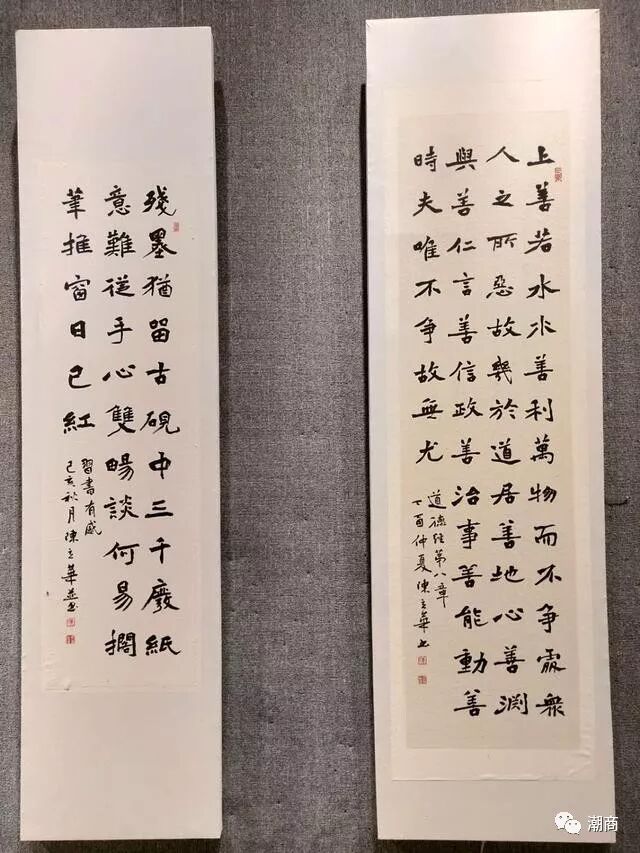 上善若水水善利萬物而不争處衆
人之所惡故幾於道居善地心善渊
與善仁言善信政善治事善能動善
時夫唯不争故無尤
道德经第八章
丁酉仲夏陳立華书
殘墨猶留古硯中三千廢紙
意難従手心雙暢談何易擱
筆推窗日已紅
習書有感
己亥秋月陳立華並书
潮商